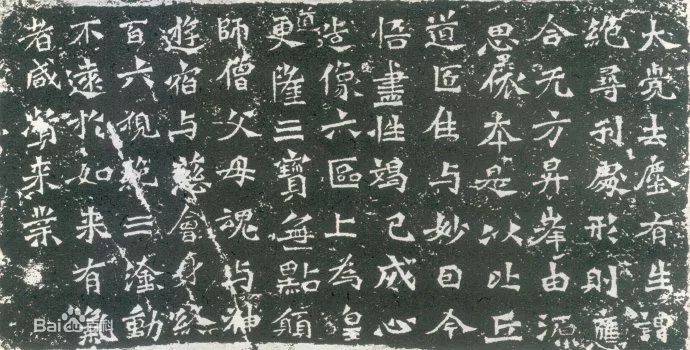 大覺去塵有生謂
絕尋刊處形則應
合无方昇峯由源
思依本是以比丘
道匠住与妙目今
悟盡性竭已成心
造像六區上為皇
道更隆三寶無點願
師僧父母魂与神
遊宿与慈會身終
百六視絕三塗動
不遠忻如来有氣
者咸資来業
Bai百科